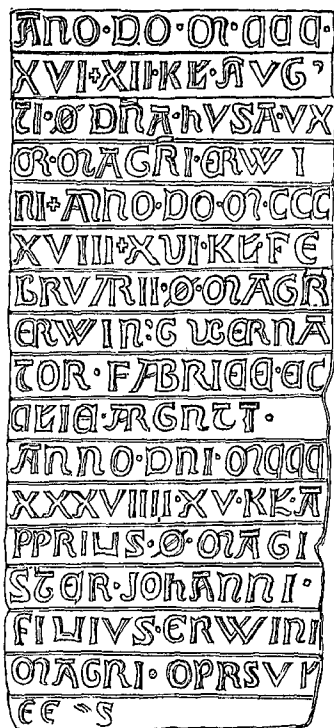 ĀNO·DO·M·CCC·
XVI+XII·KL̄·AVG'
TI·Ø DÑA·hVSA·VX
OR·MAGR̄I·ERWI
NI+ANNO·DO·M·CCC
XVIII+XVI·KL̄·FE
BRVARII·Ø·MAGR̄
ERWIN:GUBERNA
TOR·FABRICE·EC
CLIE·ARGNTI·
ANNO·DNI·MCCC
XXXVIIII·XV·KL̄·A
PPRILIS·Ø·MAGI
STER·JOhANNI·
FILIVS·ERWINI
MAGRI·OPRSVI